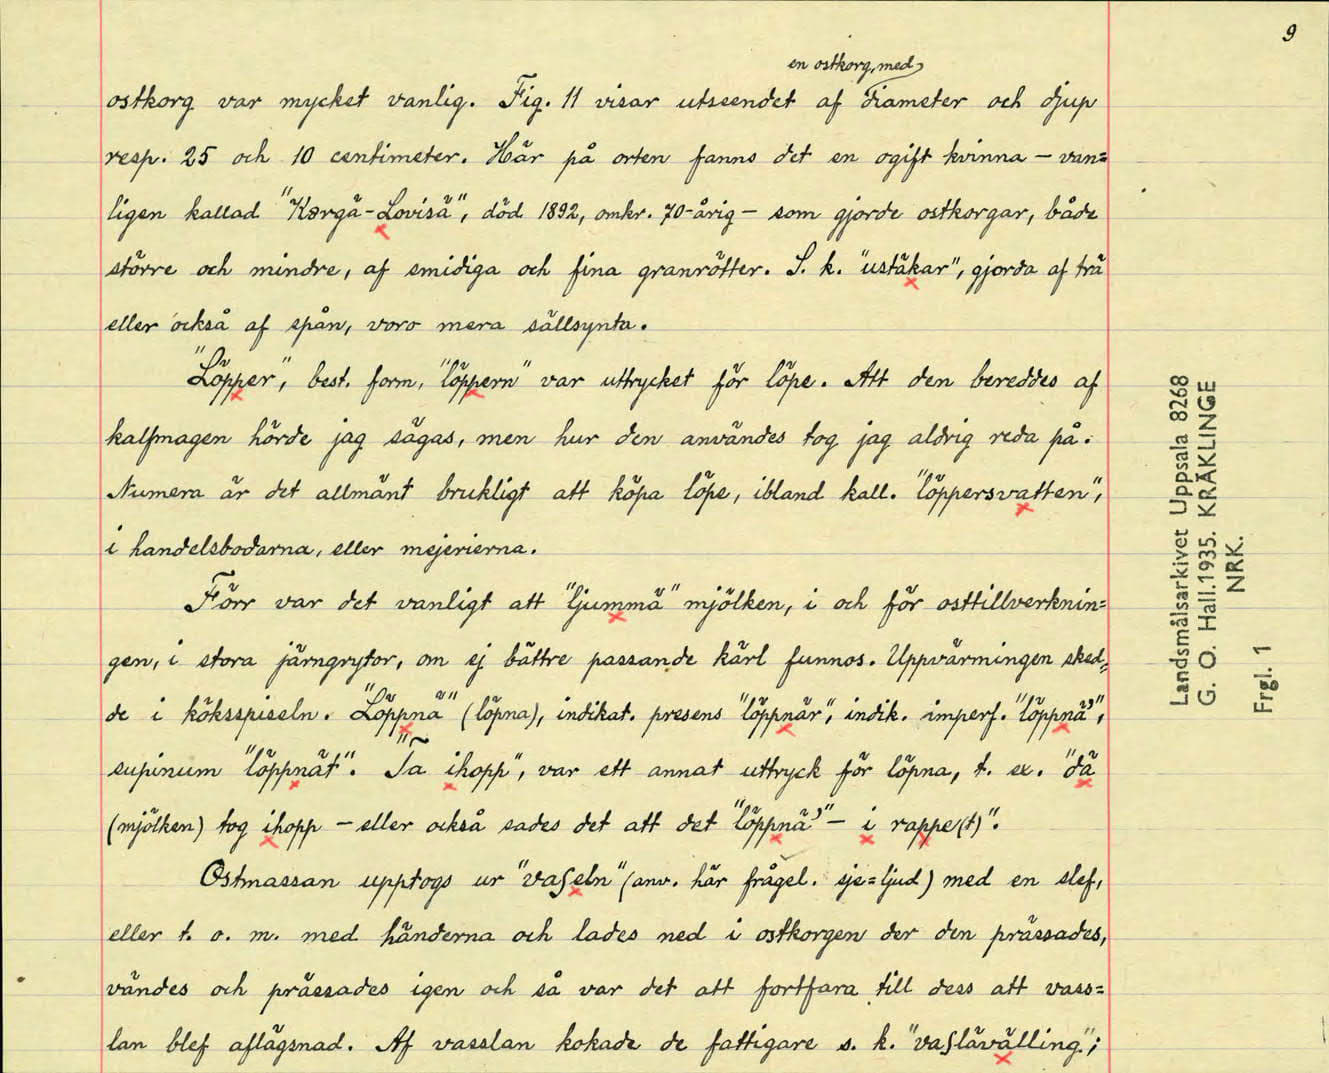 9
en ostkorg, med
ostkorg var mycket vanlig. Fig. 11 visar utseendet af diameter och djup
resp. 25 och 10 centimeter. Här på orten fanns det en ogift kvinna – van=
ligen kallad "Kərgä-Lovisä", död 1892, omkr. 70-årig – som gjorde ostkorgar, både
större och mindre, af smidiga och fina granrötter. S. k. "ustäkar", gjorda af trä
eller också af spån, voro mera sällsynta.
"Löpper", best. form, "löppern" var uttrycket för löpe. Att den bereddes af
kalfmagen hörde jag sägas, men hur den användes tog jag aldrig reda på.
Numera är det allmänt brukligt att köpa löpe, ibland kall. "löppersvatten",
i handelsbodarna, eller mejerierna.
Förr var det vanligt att "ljummä" mjölken, i och för osttillverknin=
gen, i stora järngrytor, om ej bättre passande kärl funnos. Uppvärmingen sked=
de i köksspiseln. "Löppnä" (löpna), indikat. presens "löppnär", indik. imperf. "löppnä'",
supinum "löppnät". "Ta ihopp", var ett annat uttryck för löpna, t. ex. "dä
(mjölken) tog ihopp – eller också sades det att det "löppnä'" – i rappe(t)".
Ostmassan upptogs ur "vaʃeln" (anv. här frågel. sje=ljud) med en slef,
eller t. o. m. med händerna och lades ned i ostkorgen der den prässades,
vändes och prässades igen och så var det att fortfara till dess att vass=
lan blef aflägsnad. Af vasslan kokade de fattigare s. k. "vaʃlävälling";
Landsmålsarkivet Uppsala 8268
G. O. Hall. 1935. KRÄKLINGE
NRK.
Frgl. 1